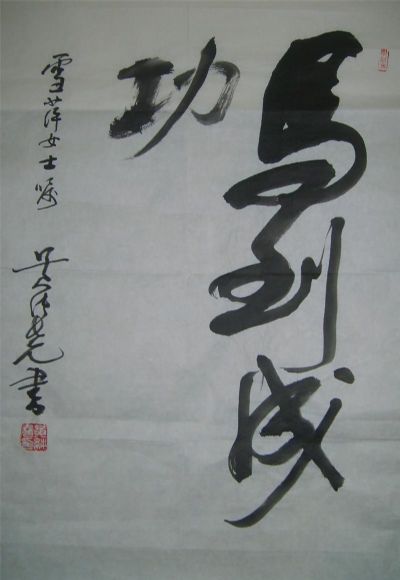 馬到成
功
雪萍女士嘱
书